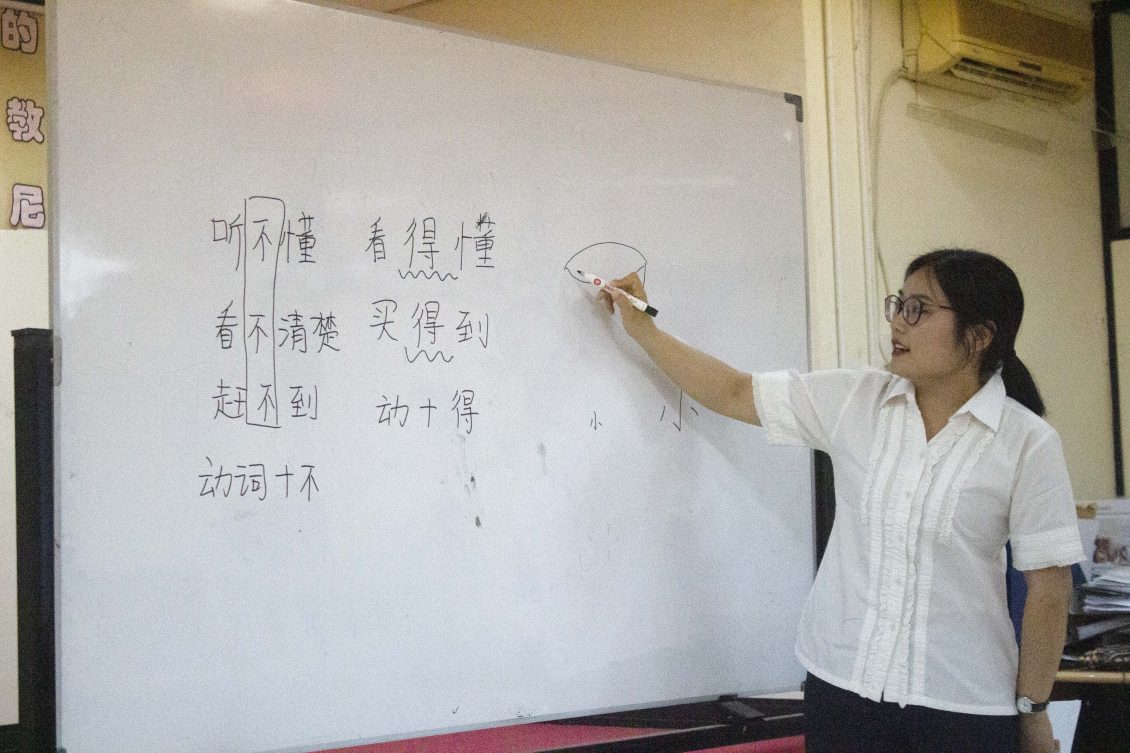 的教尼
听不懂
看不清楚
赶不到
动词+不
看得懂
买得到
动+得
小 小